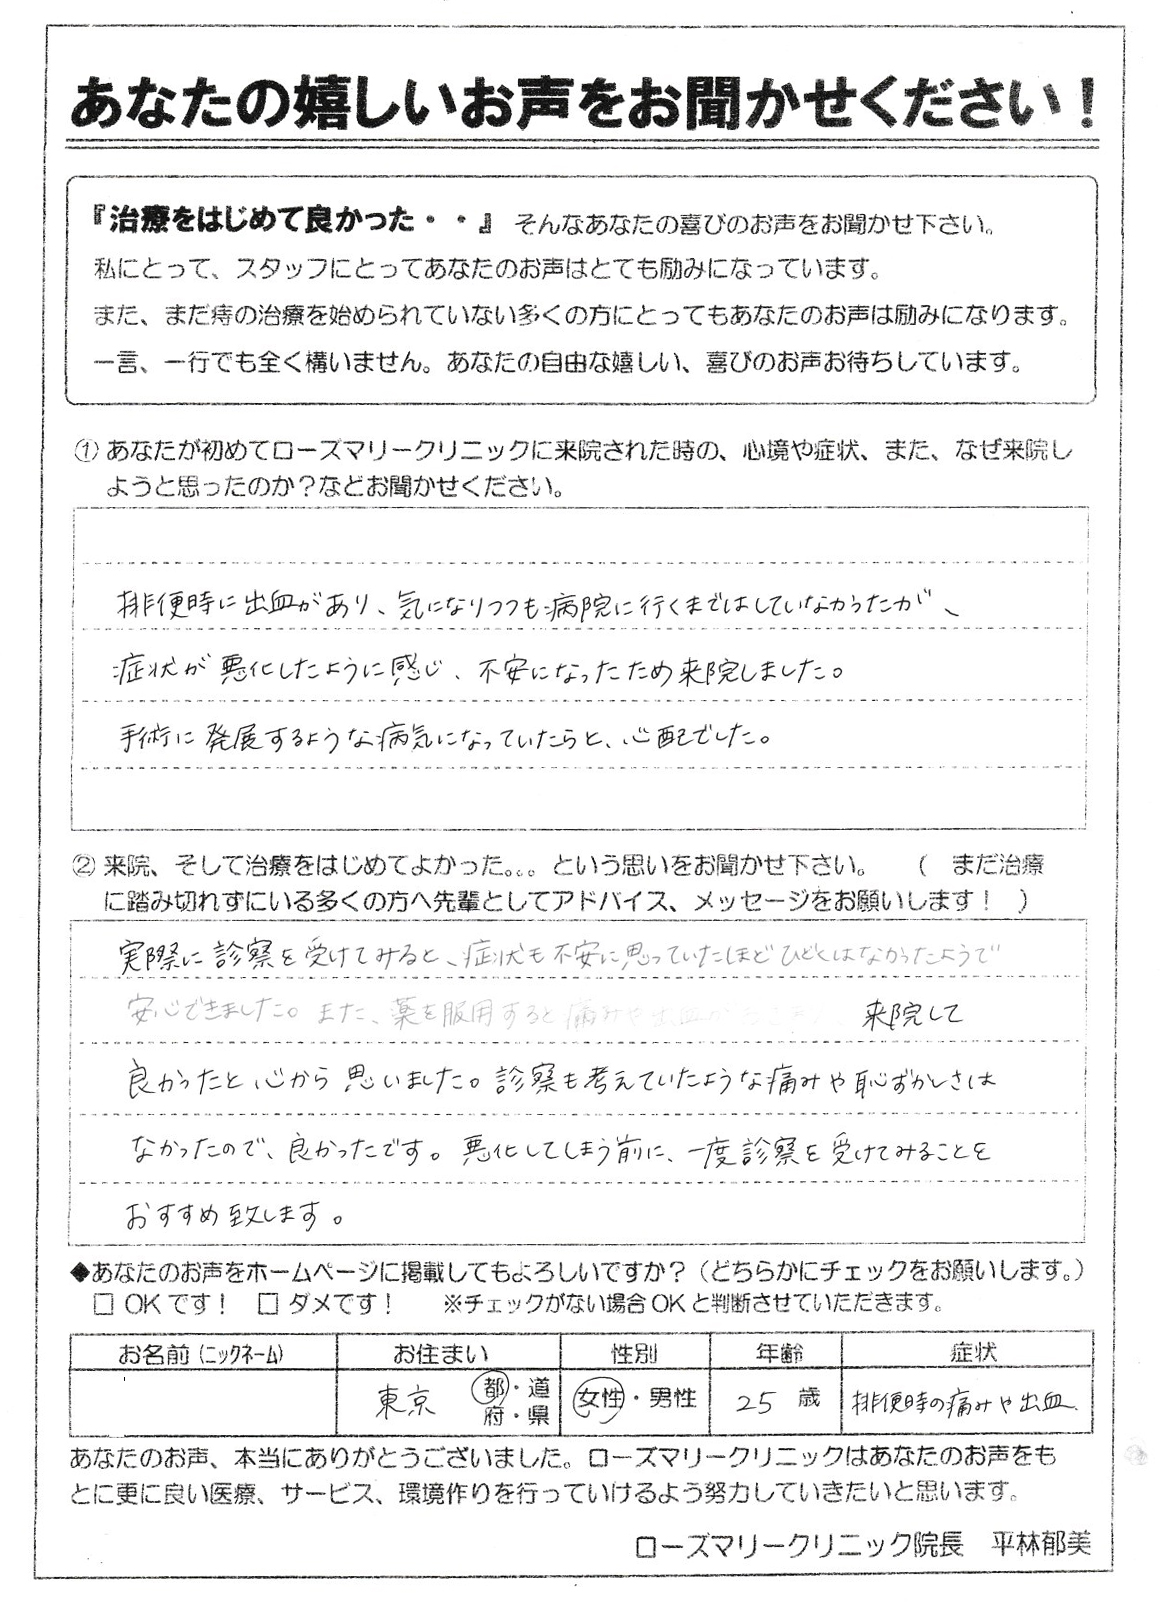 あなたの嬉しいお声をお聞かせください！
『治療をはじめて良かった・・』そんなあなたの喜びのお声をお聞かせ下さい。
私にとって、スタッフにとってあなたのお声はとても励みになっています。
また、まだ痔の治療を始められていない多くの方にとってもあなたのお声は励みになります。
一言、一行でも全く構いません。あなたの自由な嬉しい、喜びのお声お待ちしています。
① あなたが初めてローズマリークリニックに来院された時の、心境や症状、また、なぜ来院し
ようと思ったのか？などお聞かせください。
排便時に出血があり、気になりつつも病院に行くまではしていなかったが、
症状が悪化したように感じ、不安になったため来院しました。
手術に発展するような病気になっていたらと、心配でした。
② 来院、そして治療をはじめてよかった。。。という思いをお聞かせ下さい。　（　まだ治療
に踏み切れずにいる多くの方へ先輩としてアドバイス、メッセージをお願いします！　）
実際に診察を受けてみると、症状も不安に思っていたほどひどくはなかったようで
安心できました。また、薬を服用すると痛みや出血が 来院して
良かったと心から思いました。診察も考えていたような痛みや恥ずかしさは
なかったので、良かったです。悪化してしまう前に、一度診察を受けてみることを
おすすめ致します。
◆あなたのお声をホームページに掲載してもよろしいですか？（どちらかにチェックをお願いします。）
□ OKです！　□ ダメです！　※チェックがない場合OKと判断させていただきます。
お名前（ニックネーム） お住まい 性別 年齢 症状
東京 都・道 女性・男性 25 歳 排便時の痛みや出血、
府・県
あなたのお声、本当にありがとうございました。ローズマリークリニックはあなたのお声をも
とに更に良い医療、サービス、環境作りを行っていけるよう努力していきたいと思います。
ローズマリークリニック院長　平林郁美